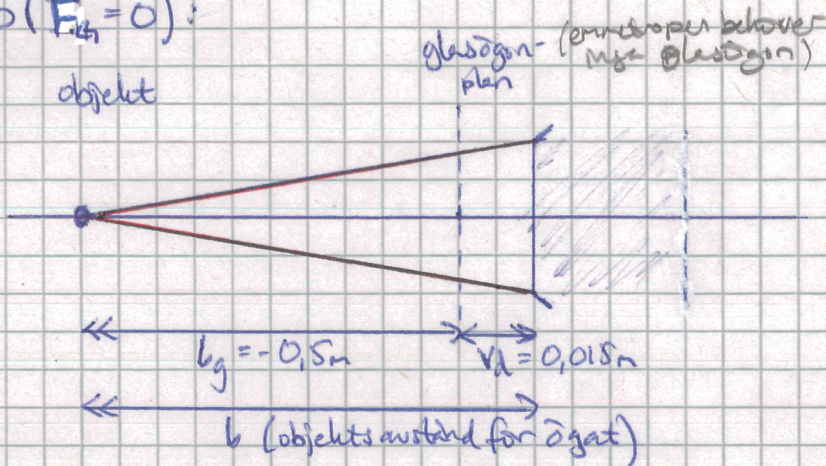 (F_th = 0):
glasögon-
plan
(emmetroper behöver
inga glasögon)
objekt
l_g = -0,5m
v_d = 0,015m
l (objektsavstånd för ögat)